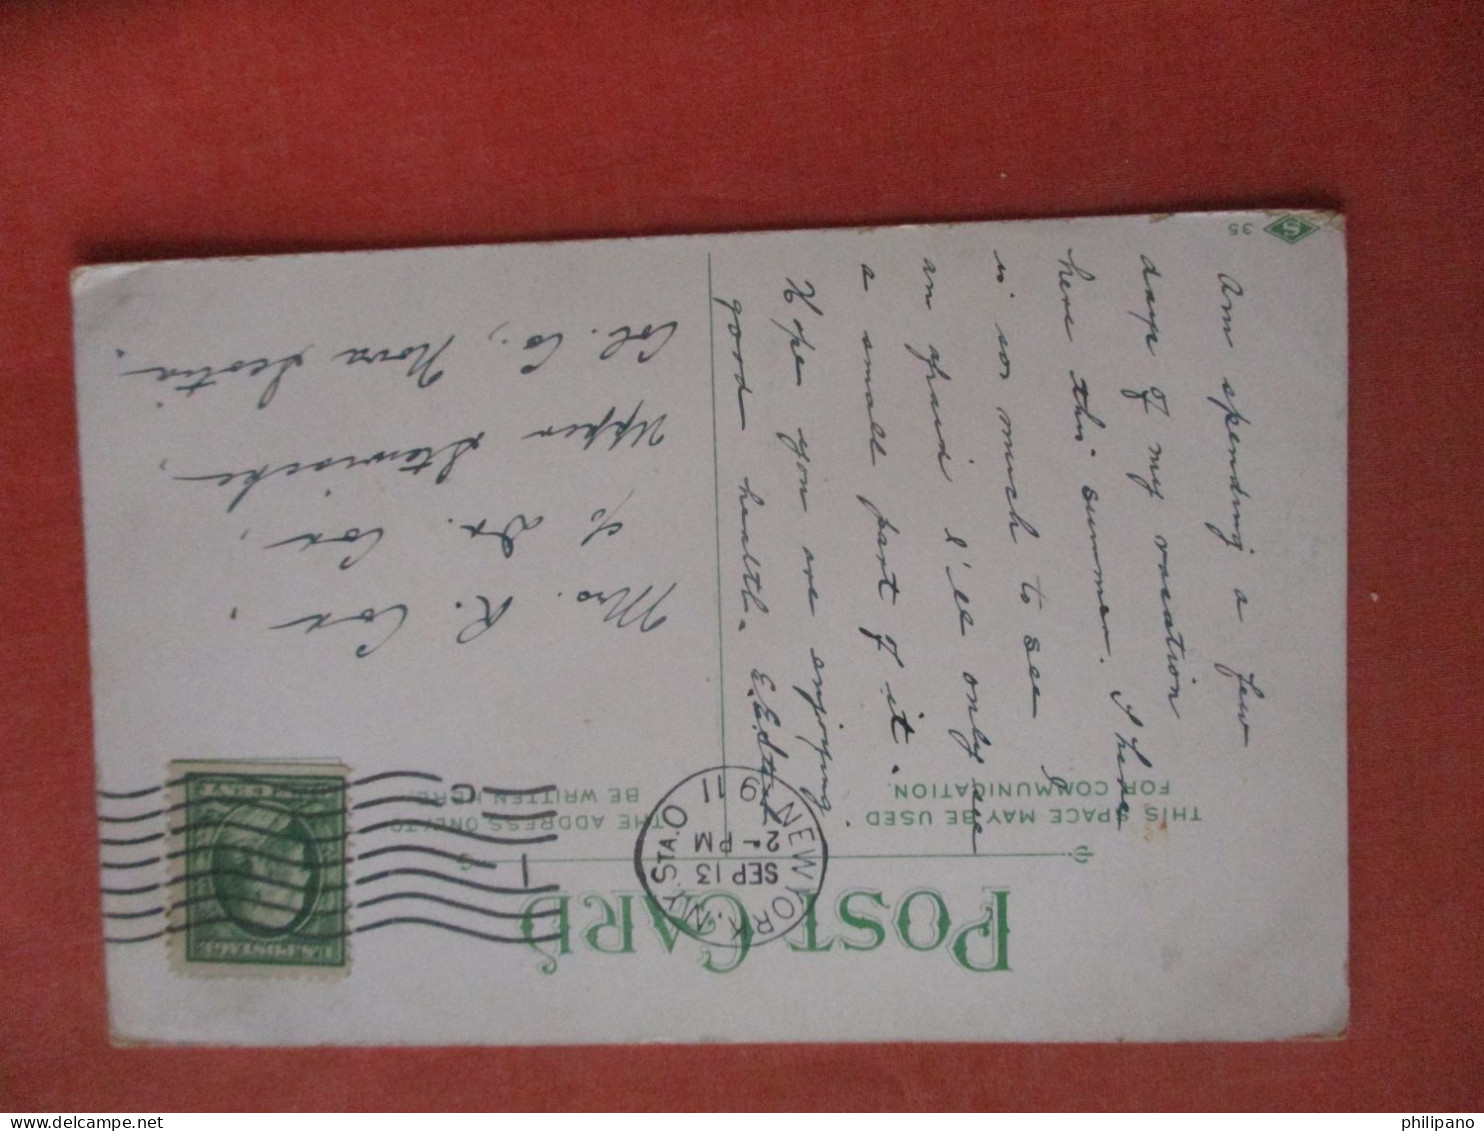 POST CARD
THIS SPACE MAY BE USED
FOR COMMUNICATION.
THE ADDRESS ONLY TO
BE WRITTEN HERE.
NEW YORK, N.Y. STA. O
SEP 13
2 - PM
1911
C
1
U.S. POSTAGE
35
S
Am spending a few
days of my vacation
here this summer. There
is so much to see
am afraid I'll only see
a small part of it.
Hope you are enjoying
good health.
Mrs. R. Cox,
c/o Dr. Cox,
Upper Stewiacke,
Col. Co., Nova Scotia.
philipano